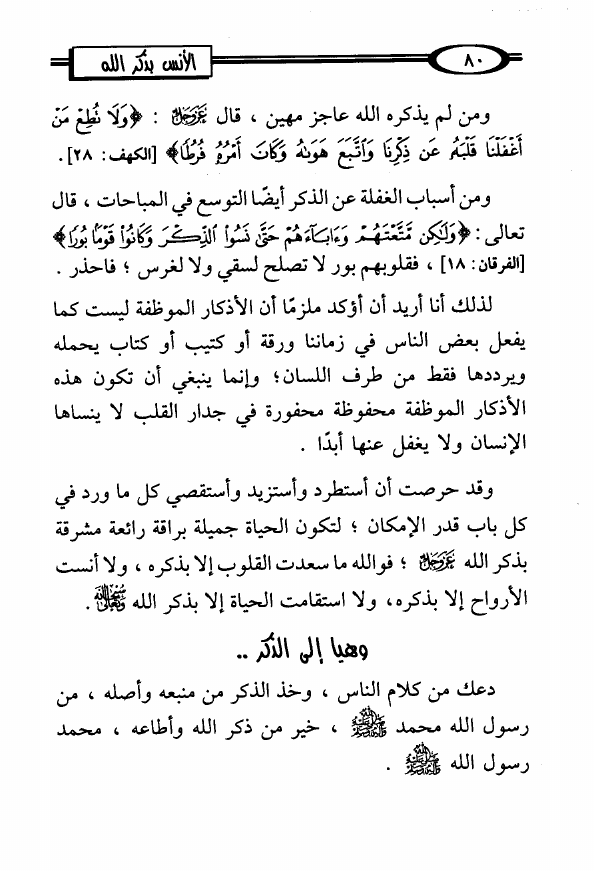 ٨٠
الأنس بذكر الله
ومن لم يذكره الله عاجز مهين ، قال عَزَّوَجَلَّ : ﴿وَلَا نُطِعْ مَنْ
أَغْفَلْنَا قَلْبَهُ عَن ذِكْرِنَا وَاتَّبَعَ هَوَىٰهُ وَكَانَ أَمْرُهُ فُرُطًا﴾ [الكهف: ٢٨].
ومن أسباب الغفلة عن الذكر أيضًا التوسع في المباحات ، قال
تعالى: ﴿وَلَٰكِن مَّتَّعْتَهُمْ وَءَابَآءَهُمْ حَتَّىٰ نَسُوا الذِّكْرَ وَكَانُوا قَوْمًا بُورًا﴾
[الفرقان: ١٨] ، فقلوبهم بور لا تصلح لسقي ولا لغرس ؛ فاحذر .
لذلك أنا أريد أن أؤكد ملزمًا أن الأذكار الموظفة ليست كما
يفعل بعض الناس في زماننا ورقة أو كتيب أو كتاب يحمله
ويرددها فقط من طرف اللسان؛ وإنما ينبغي أن تكون هذه
الأذكار الموظفة محفوظة محفورة في جدار القلب لا ينساها
الإنسان ولا يغفل عنها أبدًا .
وقد حرصت أن أستطرد وأستزيد وأستقصي كل ما ورد في
كل باب قدر الإمكان ؛ لتكون الحياة جميلة براقة رائعة مشرقة
بذكر الله عَزَّوَجَلَّ ؛ فوالله ما سعدت القلوب إلا بذكره ، ولا أنست
الأرواح إلا بذكره، ولا استقامت الحياة إلا بذكر الله سُبْحَانَهُ وَتَعَالَى .
وهيا إلى الذكر ..
دعك من كلام الناس ، وخذ الذكر من منبعه وأصله ، من
رسول الله محمد صَلَّى اللَّهُ عَلَيْهِ وَآلِهِ وَسَلَّمَ ، خير من ذكر الله وأطاعه ، محمد
رسول الله صَلَّى اللَّهُ عَلَيْهِ وَآلِهِ وَسَلَّمَ .